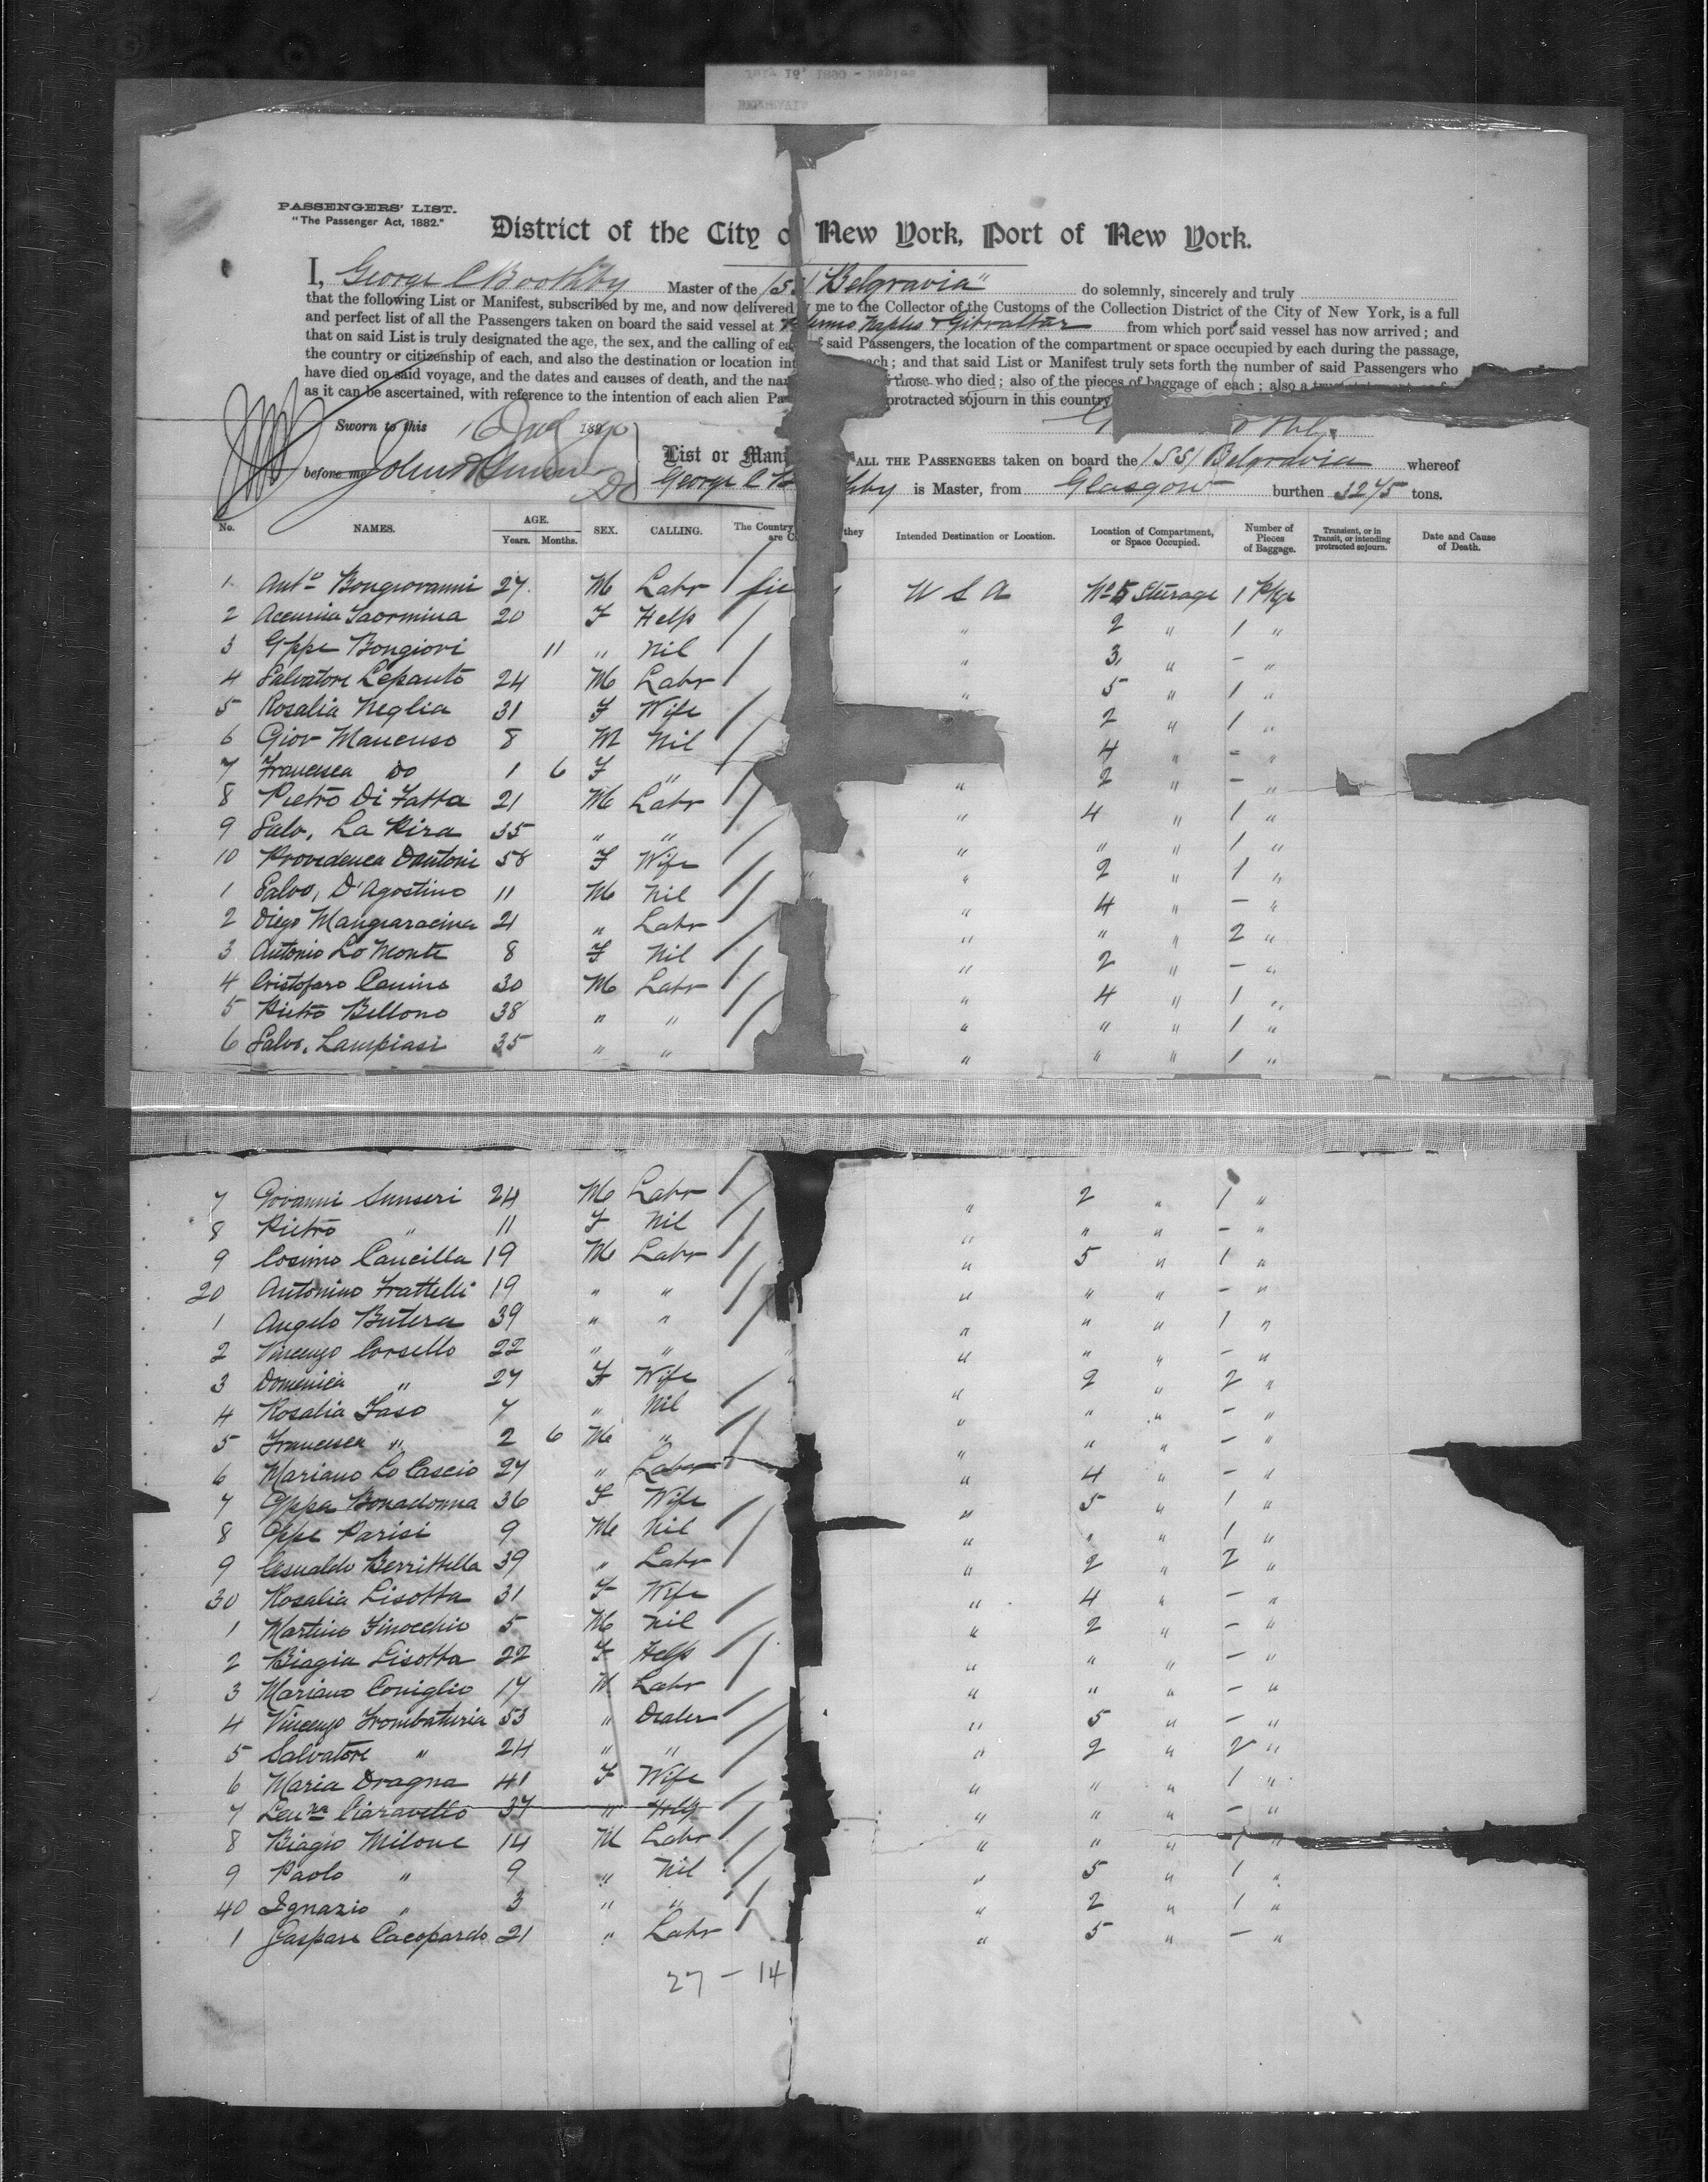 PASSENGERS' LIST.
"The Passenger Act, 1882."
District of the City o New York, Port of New York.
I, George C Boothby Master of the (SS) "Belgravia" do solemnly, sincerely and truly
that the following List or Manifest, subscribed by me, and now delivered by me to the Collector of the Customs of the Collection District of the City of New York, is a full
and perfect list of all the Passengers taken on board the said vessel at Naples & Gibraltar from which port said vessel has now arrived; and
that on said List is truly designated the age, the sex, and the calling of ea f said Passengers, the location of the compartment or space occupied by each during the passage,
the country or citizenship of each, and also the destination or location int each; and that said List or Manifest truly sets forth the number of said Passengers who
have died on said voyage, and the dates and causes of death, and the nam those who died; also of the pieces of baggage of each; also a true
as it can be ascertained, with reference to the intention of each alien Pa protracted sojourn in this country
Sworn to this 16 July 1890
before me
List or Mani ALL THE PASSENGERS taken on board the (SS) Belgravia whereof
George C B hby is Master, from Glasgow burthen 3245 tons.
No. NAMES. AGE. Years. Months. SEX. CALLING. The Country are C they Intended Destination or Location. Location of Compartment, or Space Occupied. Number of Pieces of Baggage. Transient, or in Transit, or intending protracted sojourn. Date and Cause of Death.
1 Anto Bongiovanni 27 M Labr Sic U S A No 5 Sturage 1 Pkge
2 Accursia Taormina 20 F Help " 2 " 1 "
3 Gppe Bongiovi 11 " Nil " 3 " - "
4 Salvatore Lepanto 24 M Labr " 5 " 1 "
5 Rosalia Neglia 31 F Wife 2 " 1 "
6 Giov Mancuso 8 M Nil 4 " - "
7 Francesca Do 1 6 F " " 2 " - "
8 Pietro Di Fatta 21 M Labr " 4 " 1 "
9 Salv. La Pira 35 " " " " " 1 "
10 Providenca Dantoni 58 F Wife " 2 " 1 "
1 Salvo, D'Agostino 11 M Nil " 4 " - "
2 Diego Mangiaracina 21 " Labr " " " 2 "
3 Antonio Lo Monte 8 F Nil " 2 " - "
4 Cristofaro Canino 30 M Labr " 4 " 1 "
5 Pietro Bellono 38 " " " " " 1 "
6 Salvo. Lampiasi 35 " " " " " 1 "
7 Giovanni Sunseri 24 M Labr " 2 " 1 "
8 Pietro " 11 F Nil " " " - "
9 Cosimo Cancilla 19 M Labr " 5 " 1 "
20 Antonino Frattelli 19 " " " " " - "
1 Angelo Butera 39 " " " " " 1 "
2 Vincenzo Corsello 22 " " " " " - "
3 Domenica " 27 F Wife " 2 " 2 "
4 Rosalia Faso 7 " Nil " " " - "
5 Francesca " 2 6 M " " " " - "
6 Mariano Lo Cascio 27 " Labr " 4 " - "
7 Gppa Bonadonna 36 F Wife " 5 " 1 "
8 Gppe Parisi 9 M Nil " " " 1 "
9 Gesualdo Berrittella 39 " Labr " 2 " 2 "
30 Rosalia Lisotta 31 F Wife " 4 " - "
1 Martino Finocchio 5 M Nil " 2 " - "
2 Biagia Lisotta 22 F Help " " " - "
3 Mariano Coniglio 17 M Labr " " " - "
4 Vincenzo Trombaturia 53 " Dealer " 5 " - "
5 Salvatore " 24 " " " 2 " 2 "
6 Maria Dragna 41 F Wife " " " 1 "
7 Ciaravello 37 " Help " " " - "
8 Biagio Milone 14 M Labr " " " 1 "
9 Paolo " 9 " Nil " 5 " 1 "
40 Ignazio " 3 " " " 2 " 1 "
1 Gaspare Cacopardo 21 " Labr " 5 " - "
27 - 14